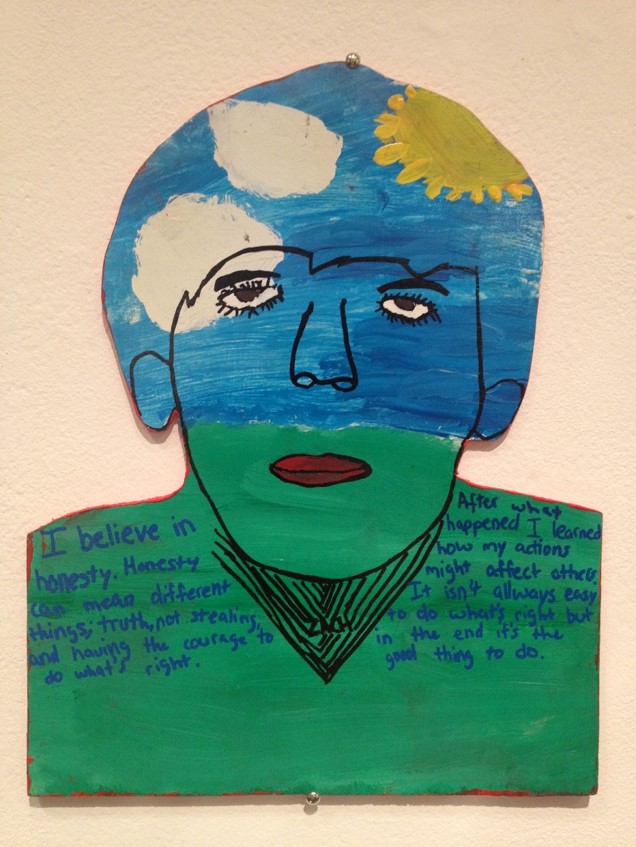 I believe in
honesty. Honesty
can mean different
things; truth, not stealing,
and having the courage to
do what's right.
ZACH
After what
happened I learned
how my actions
might affect others.
It isn't allways easy
to do what's right but
in the end it's the
good thing to do.